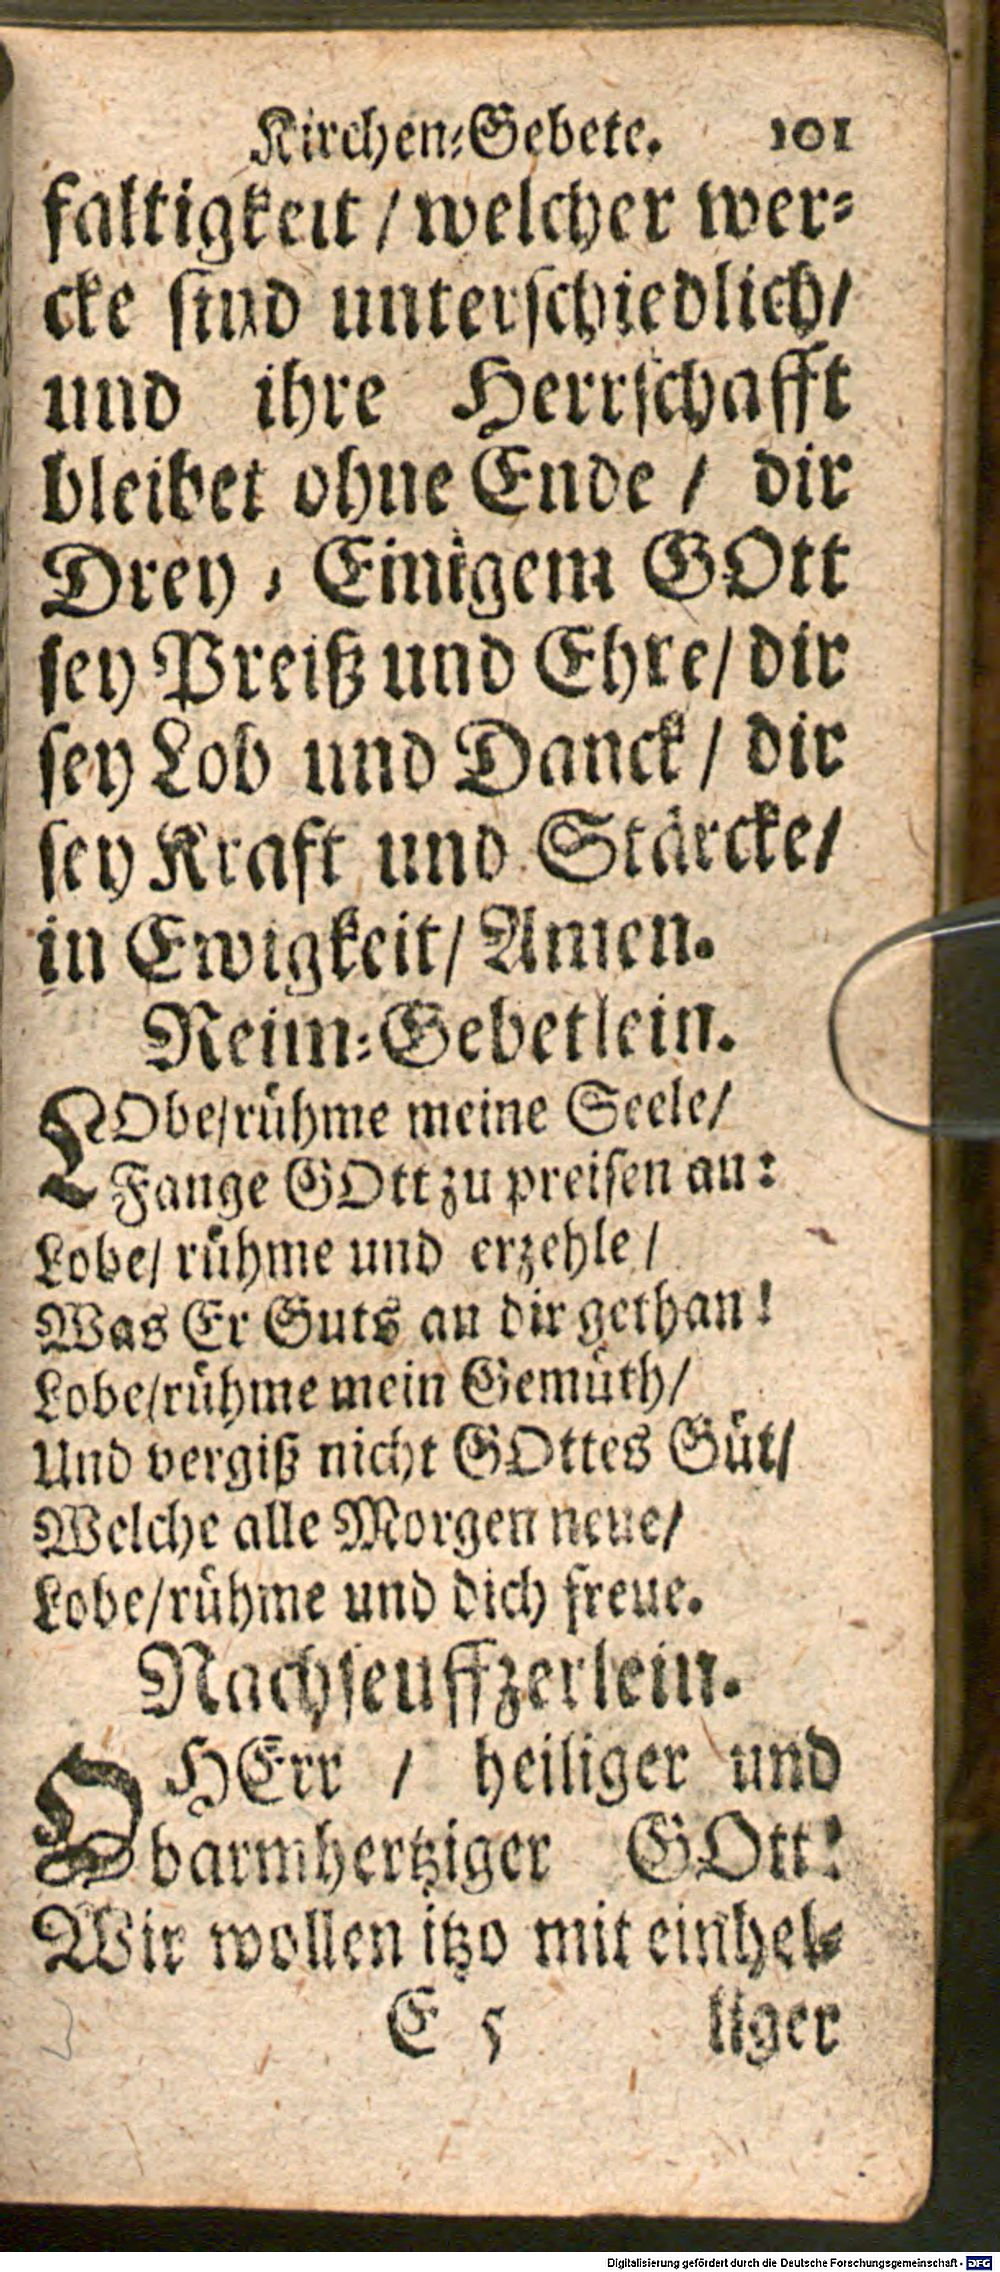 Kirchen-Gebete. 101
faltigkeit / welcher wer-
cke sind unterschiedlich/
und ihre Herrschafft
bleibet ohne Ende / dir
Drey - Einigem GOtt
sey Preiß und Ehre/ dir
sey Lob und Danck / dir
sey Kraft und Stärcke/
in Ewigkeit/ Amen.
Reim-Gebetlein.
LObe/rühme meine Seele/
Fange GOtt zu preisen an:
Lobe/ rühme und erzehle /
Was Er Guts an dir gethan!
Lobe/rühme mein Gemüth/
Und vergiß nicht GOttes Güt/
Welche alle Morgen neue/
Lobe/rühme und dich freue.
Nachseuffzerlein.
O HErr / heiliger und
barmhertziger GOtt!
Wir wollen itzo mit einhel-
E 5 liger
Digitalisierung gefördert durch die Deutsche Forschungsgemeinschaft - DFG